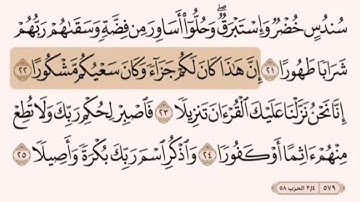 سُندُسٍ خُضْرٌ وَإِسْتَبْرَقٌ ۖ وَحُلُّوٓا۟ أَسَاوِرَ مِن فِضَّةٍ وَسَقَىٰهُمْ رَبُّهُمْ
شَرَابًا طَهُورًا ٢١ إِنَّ هَٰذَا كَانَ لَكُمْ جَزَآءً وَكَانَ سَعْيُكُم مَّشْكُورًا ٢٢
إِنَّا نَحْنُ نَزَّلْنَا عَلَيْكَ ٱلْقُرْءَانَ تَنزِيلًا ٢٣ فَٱصْبِرْ لِحُكْمِ رَبِّكَ وَلَا تُطِعْ
مِنْهُمْ ءَاثِمًا أَوْ كَفُورًا ٢٤ وَٱذْكُرِ ٱسْمَ رَبِّكَ بُكْرَةً وَأَصِيلًا ٢٥
٥٧٩ ٣/٤ الحزب ٥٨